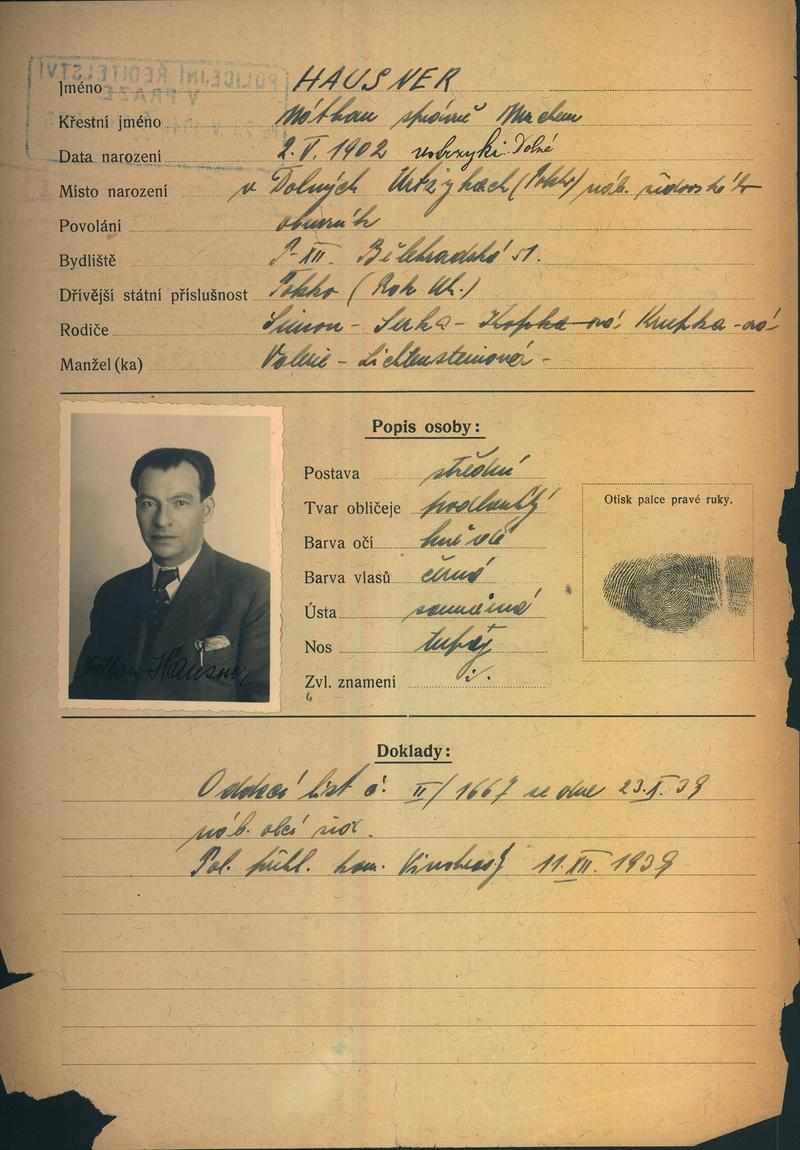 POLICEJNÍ ŘEDITELSTVÍ
V PRAZE
Jméno HAUSNER
Křestní jméno Náthan správně
Data narození 2. V. 1902 Dolné
Místo narození v Dolných (Polsko) náb. židovského
Povolání obuvník
Bydliště P-XII. Bělehradská 51.
Dřívější státní příslušnost Polsko
Rodiče Simon - - Krupka - ová
Manžel (ka) Valerie - Lichtensteinová -
Popis osoby:
Postava střední
Tvar obličeje podlouhlý
Barva očí hnědé
Barva vlasů černá
Ústa souměrná
Nos tupý
Zvl. znamení ·/·
Otisk palce pravé ruky.
Nathan Hausner
Doklady:
Oddací list č. II/1667 ze dne 23.X.39
náb. obcí žid.
Pol. přihl. kom. Vinohrady 11.XII. 1939